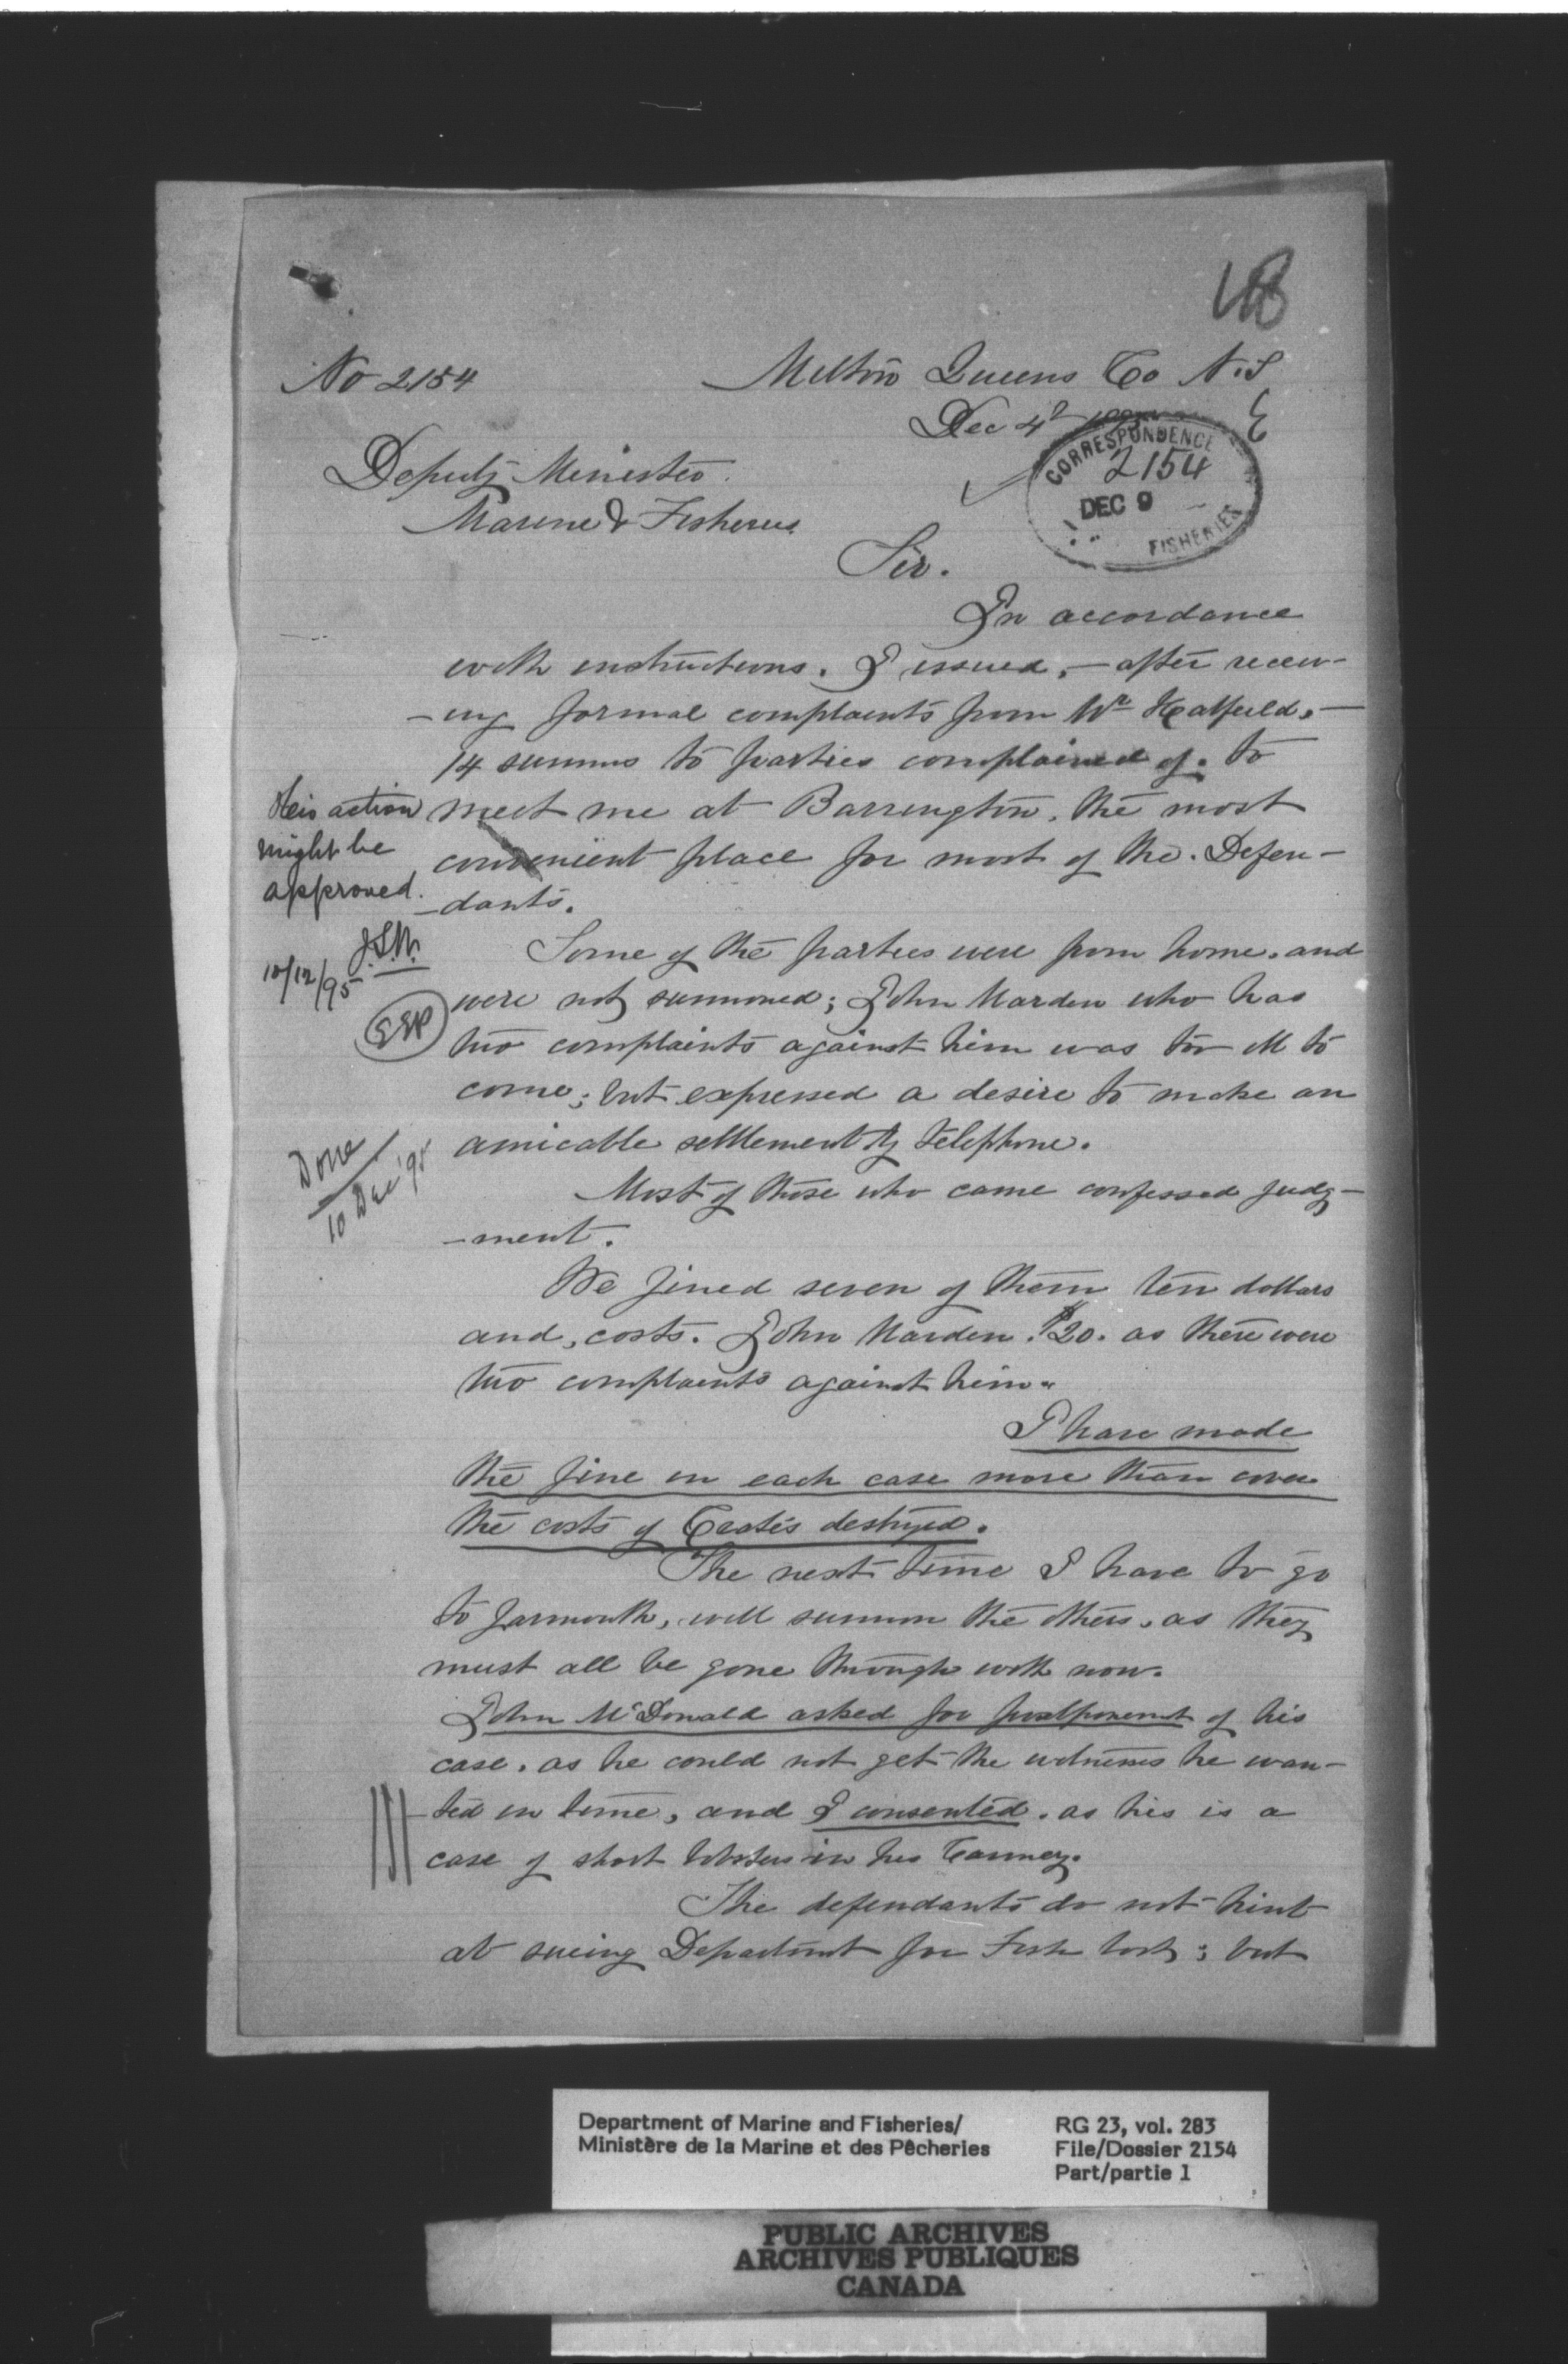 No 2154
Milton Queens Co N.S
Dec 4th
CORRESPONDENCE
2154
DEC 9
FISHERIES
Deputy Minister.
Marine & Fisheries.
Sir.
In accordance
with instructions. I issued, - after receiv-
-ing formal complaints from Wm Hatfield, -
14 summs to parties complained of. to
meet me at Barrington, the most
convenient place for most of the. Defen-
-dants.
His action
might be
approved.
10/12/95
Some of the parties were from home, and
were not summoned; John Marden who has
two complaints against him was too ill to
come; but expressed a desire to make an
amicable settlement by telephone.
Done
10 Dec '95
Most of those who came confessed judg-
-ment.
We fined seven of them ten dollars
and, costs. John Marden $20. as there were
two complaints against him.
I have made
the fine in each case more than cover
the costs of Crates destroyed.
The next time I have to go
to Yarmouth, will summon the others, as they
must all be gone through with now.
John McDonald asked for postponement of his
case, as he could not get the witnesses he wan-
-ted in time, and I consented. as his is a
case of short lobsters in his Cannery.
The defendants do not hint
at sueing Department for Fish lost; but
Department of Marine and Fisheries/
Ministère de la Marine et des Pêcheries
RG 23, vol. 283
File/Dossier 2154
Part/partie 1
PUBLIC ARCHIVES
ARCHIVES PUBLIQUES
CANADA